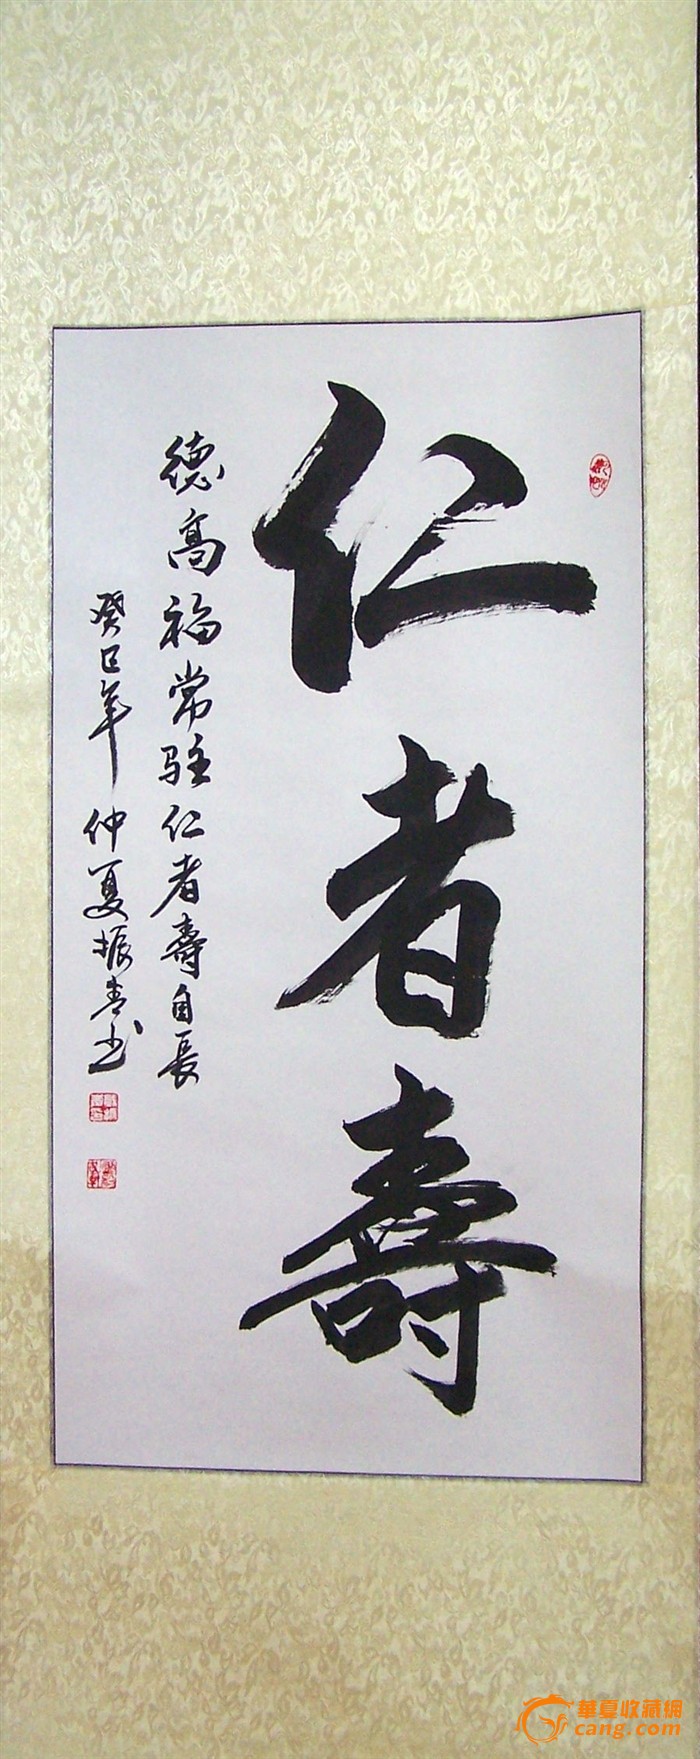 仁者壽
德高福常駐仁者壽自長
癸巳年仲夏振青书
華夏收藏網
cang.com